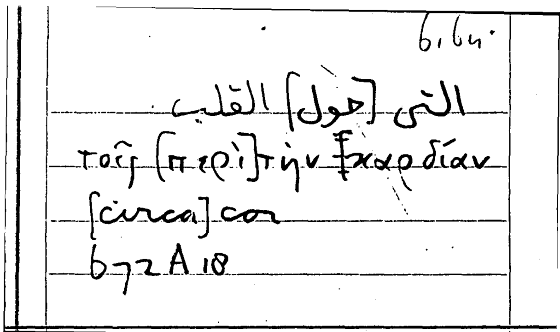 التى [حول] القلب
τοῖς [περὶ] τὴν καρδίαν
[circa] cor
672 A 18